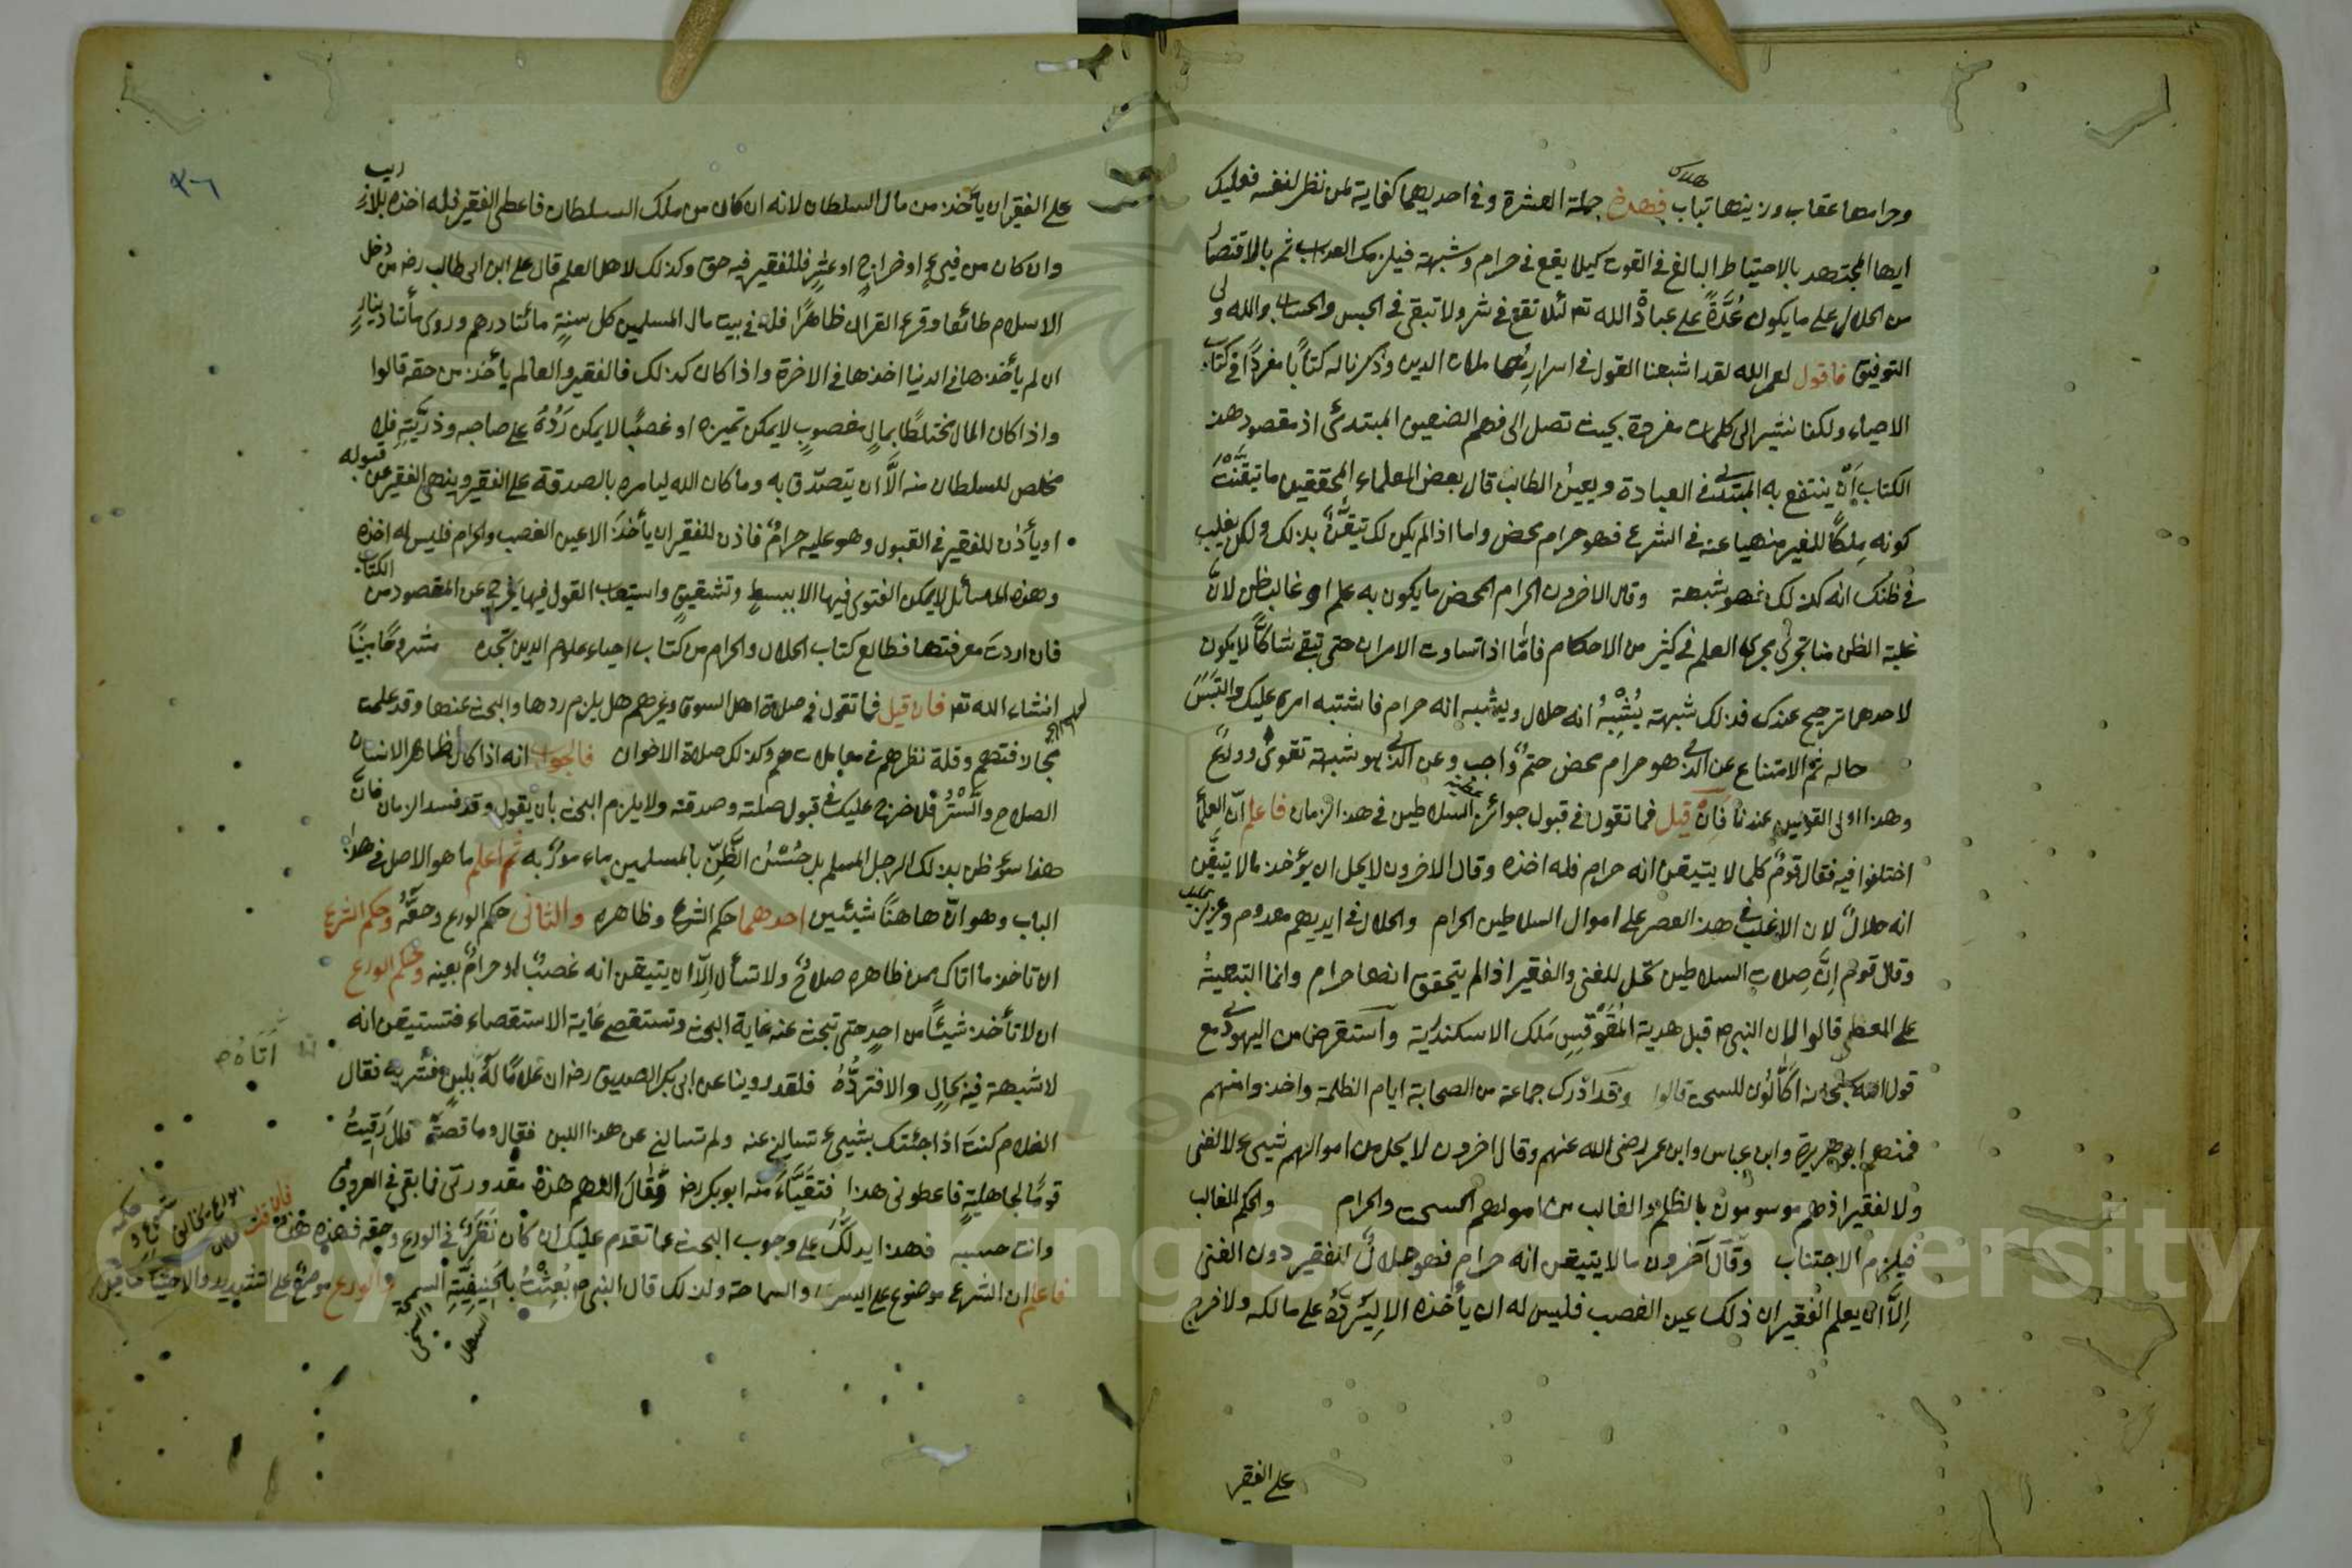 وحرامها عقاب وزينتها تباب فهذه جملة العشرة وفي احديهما كفاية لمن نظر لنفسه فعليك
ايها المجتهد بالاحتياط البالغ في القوت كيلا يقع في حرام وشبهة فيلزمك العذاب ثم بالاقتصار
من الحلال على ما يكون عُدَّةً على عبادة الله تع لئلا تقع في شر ولا تبقى في الحبس والحساب والله ولى
التوفيق فاقول لعمر الله لقد اشبعنا القول في اسرار معاملات الدين وذكرنا له كتابًا مفردًا في كتاب
الاحياء ولكنا نشير الى كلمات مفردة بحيث تصل الى فهم الضعيف المبتدئ اذ مقصود هذا
الكتاب اَنْ ينتفع به المبتدئ في العبادة ويعين الطالب قال بعض العلماء المحققين ما تيقَّنْتَ
كونه مِلكًا للغير منهيا عنه في الشرع فهو حرام محض واما اذا لم يكن لك تيقُّنٌ بذلك ولكن يغلب
في ظنك انه كذلك فهو شبهة وقال الاخرون الحرام المحض ما يكون به علم او غالب ظن لانَّ
غلبة الظن منا تجرى مجرى العلم في كثير من الاحكام فامّا اذا تساوت الامران حتى تبقى شاكًّا لا يكون
لاحدهما ترجيح عندك فذلك شبهة يُشْبِهُ انه حلال ويشبه انه حرام فاشتبه امره عليك والتبَسَ
حاله ثم الامتناع عن الذى هو حرام محض حتمٌ واجب وعن الذى هو شبهة تقوى وورعٌ
وهذا اولى القولين عندنا فَاِنْ قيل فما تقول في قبول جوائز السلاطين في هذا الزمان فاعلم انّ العلماء
اختلفوا فيه فقال قومٌ كلما لا يتيقن انه حرام فله اخذه وقال الاخرون لا يحل ان يؤخذ ما لا تيقَّن
انه حلالٌ لان الاغلب في هذا العصر على اموال السلاطين الحرام والحلال في ايديهم معدوم وعزيز
وقال قوم اِنَّ صِلات السلاطين تحل للغنى والفقير اذا لم يتحقق انها حرام وانما التبعيةُ
على المعطى قالوا لان النبى ص قبل هدية المُقَوقِسِ مَلك الاسكندرية وٱستقرض من اليهودى مع
قول الله سبحانه اَكَّالُون للسحت قالوا وقد ادرك جماعة من الصحابة ايام الظلمة واخذوا منهم
فمنهم ابو هريرة وابن عباس وابن عمر رضى الله عنهم وقال اخرون لا يحل من اموالهم شيئ لا لغنى
ولا لفقير اذهم موسومون بالظلم والغالب من اموالهم السحت والحرام والحكم للغالب
فيلزم الاجتناب وقال آخرون ما لا يتيقن انه حرام فهو حلالٌ للفقير دون الغنى
اِلَّا ان يعلم الفقير ان ذلك عين الغصب فليس له ان يأخذه الا ليَرُدَّهُ على مالكه ولا خرج
على الفقير
على الفقير ان يأخذ من مال السلطان لانه ان كان من ملك السلطان فاعطى الفقير فله اخذه بلا ريب
وان كان من فيئٍ او خراجٍ او عشرٍ فللفقير فيه حق وكذلك لاهل العلم قال على ابن ابى طالب رضه من دخل
الاسلام طائعا وقرء القران ظاهرًا فله في بيت مال المسلمين كل سنةٍ مائتا درهم وروى مأتا دينارٍ
ان لم يأخذها في الدنيا اخذها في الاخرة واذا كان كذلك فالفقير والعالم يأخذ من حقه قالوا
واذا كان المال مختلطًا بمالٍ مغصوبٍ لا يمكن تميزه او غصبًا لا يمكن رَدُّهُ على صاحبه وذرّيته فلا
مخلص للسلطان منه اِلَّا ان يتصدّق به وما كان الله ليامره بالصدقة على الفقير وينهى الفقير عن قبوله
او يأذن للفقير في القبول وهو عليه حرامٌ فاذن للفقير ان يأخذَ الا عين الغصب والحرام فليس له اخذه
وهذه المسائل لا يمكن الفتوى فيها الا ببسطٍ وتشقيقٍ واستيعاب القول فيها يخرج عن المقصود من الكتاب
فان اردتَ معرفتها فطالع كتاب الحلال والحرام من كتاب احياء علوم الدين تجده مشروحًا بيّنًا
انشاء الله تع فان قيل فما تقول في صلات اهل السوق وغيرهم هل يلزم ردها والبحث عنها وقد علمت
مجازفتهم وقلة نظرهم في معاملاتهم وكذلك صلاة الاخوان فالجواب انه اذا كان ظاهر الانسان
الصلاح والسَّتْرُ فلا خرج عليك في قبول صلته وصدقته ولا يلزم البحث بان يقول وقد فسد الزمان فانَّ
هذا سوء ظن بذلك الرجل المسلم بل حُسْنُ الظَّنِّ بالمسلمين ماء مورٌ به ثم اعلم ما هو الاصل في هذا
الباب وهو انّ هاهنا شيئين احدهما حكم الشرع وظاهره والثانى حكم الورع وحقُّهُ وحكم الشرع
ان تاخذ ما اتاك ممن ظاهره صلاحٌ ولا تسأل اِلّا ان يتيقن انه غصبٌ او حرامٌ بعينه وحكم الورع
ان لا تأخذ شيئًا من احدٍ حتى تبحث عنه غاية البحث وتستقصى غاية الاستقصاء فتستيقن انه
لا شبهة فيه بحالٍ والا فتردُّهُ فلقد روينا عن ابى بكر الصديق رضه ان غلامًا لَهُ اَتَاهُ بلبنٍ فشربه فقال
الغلام كنتَ اذا جئتك بشيئ تسالنى عنه ولم تسالنى عن هذا اللبن فقال وما قصته قال رَقيتُ
قومًا لجاهليةٍ فاعطونى هذا فتقيَّاءَ منه ابو بكر رضه وَقَالَ اللهم هذه مقدورتى فما بقى في العروق
وانت حسبه فهذا يدلُّك على وجوب البحث عما تقدم عليك ان كان نَظَرُكَ في الورع وحقه فهذه هذه فان قلت كان الورع يخالف الشرع وحكمه
فاعلم ان الشرع موضوع على اليسر والسماحة ولذلك قال النبى ص بُعِثْتُ بالحَنِيفِيّةِ السمحة والورع موضوعٌ على التشديد والاحتياط كما قيل
السهل
السخى
٣٦